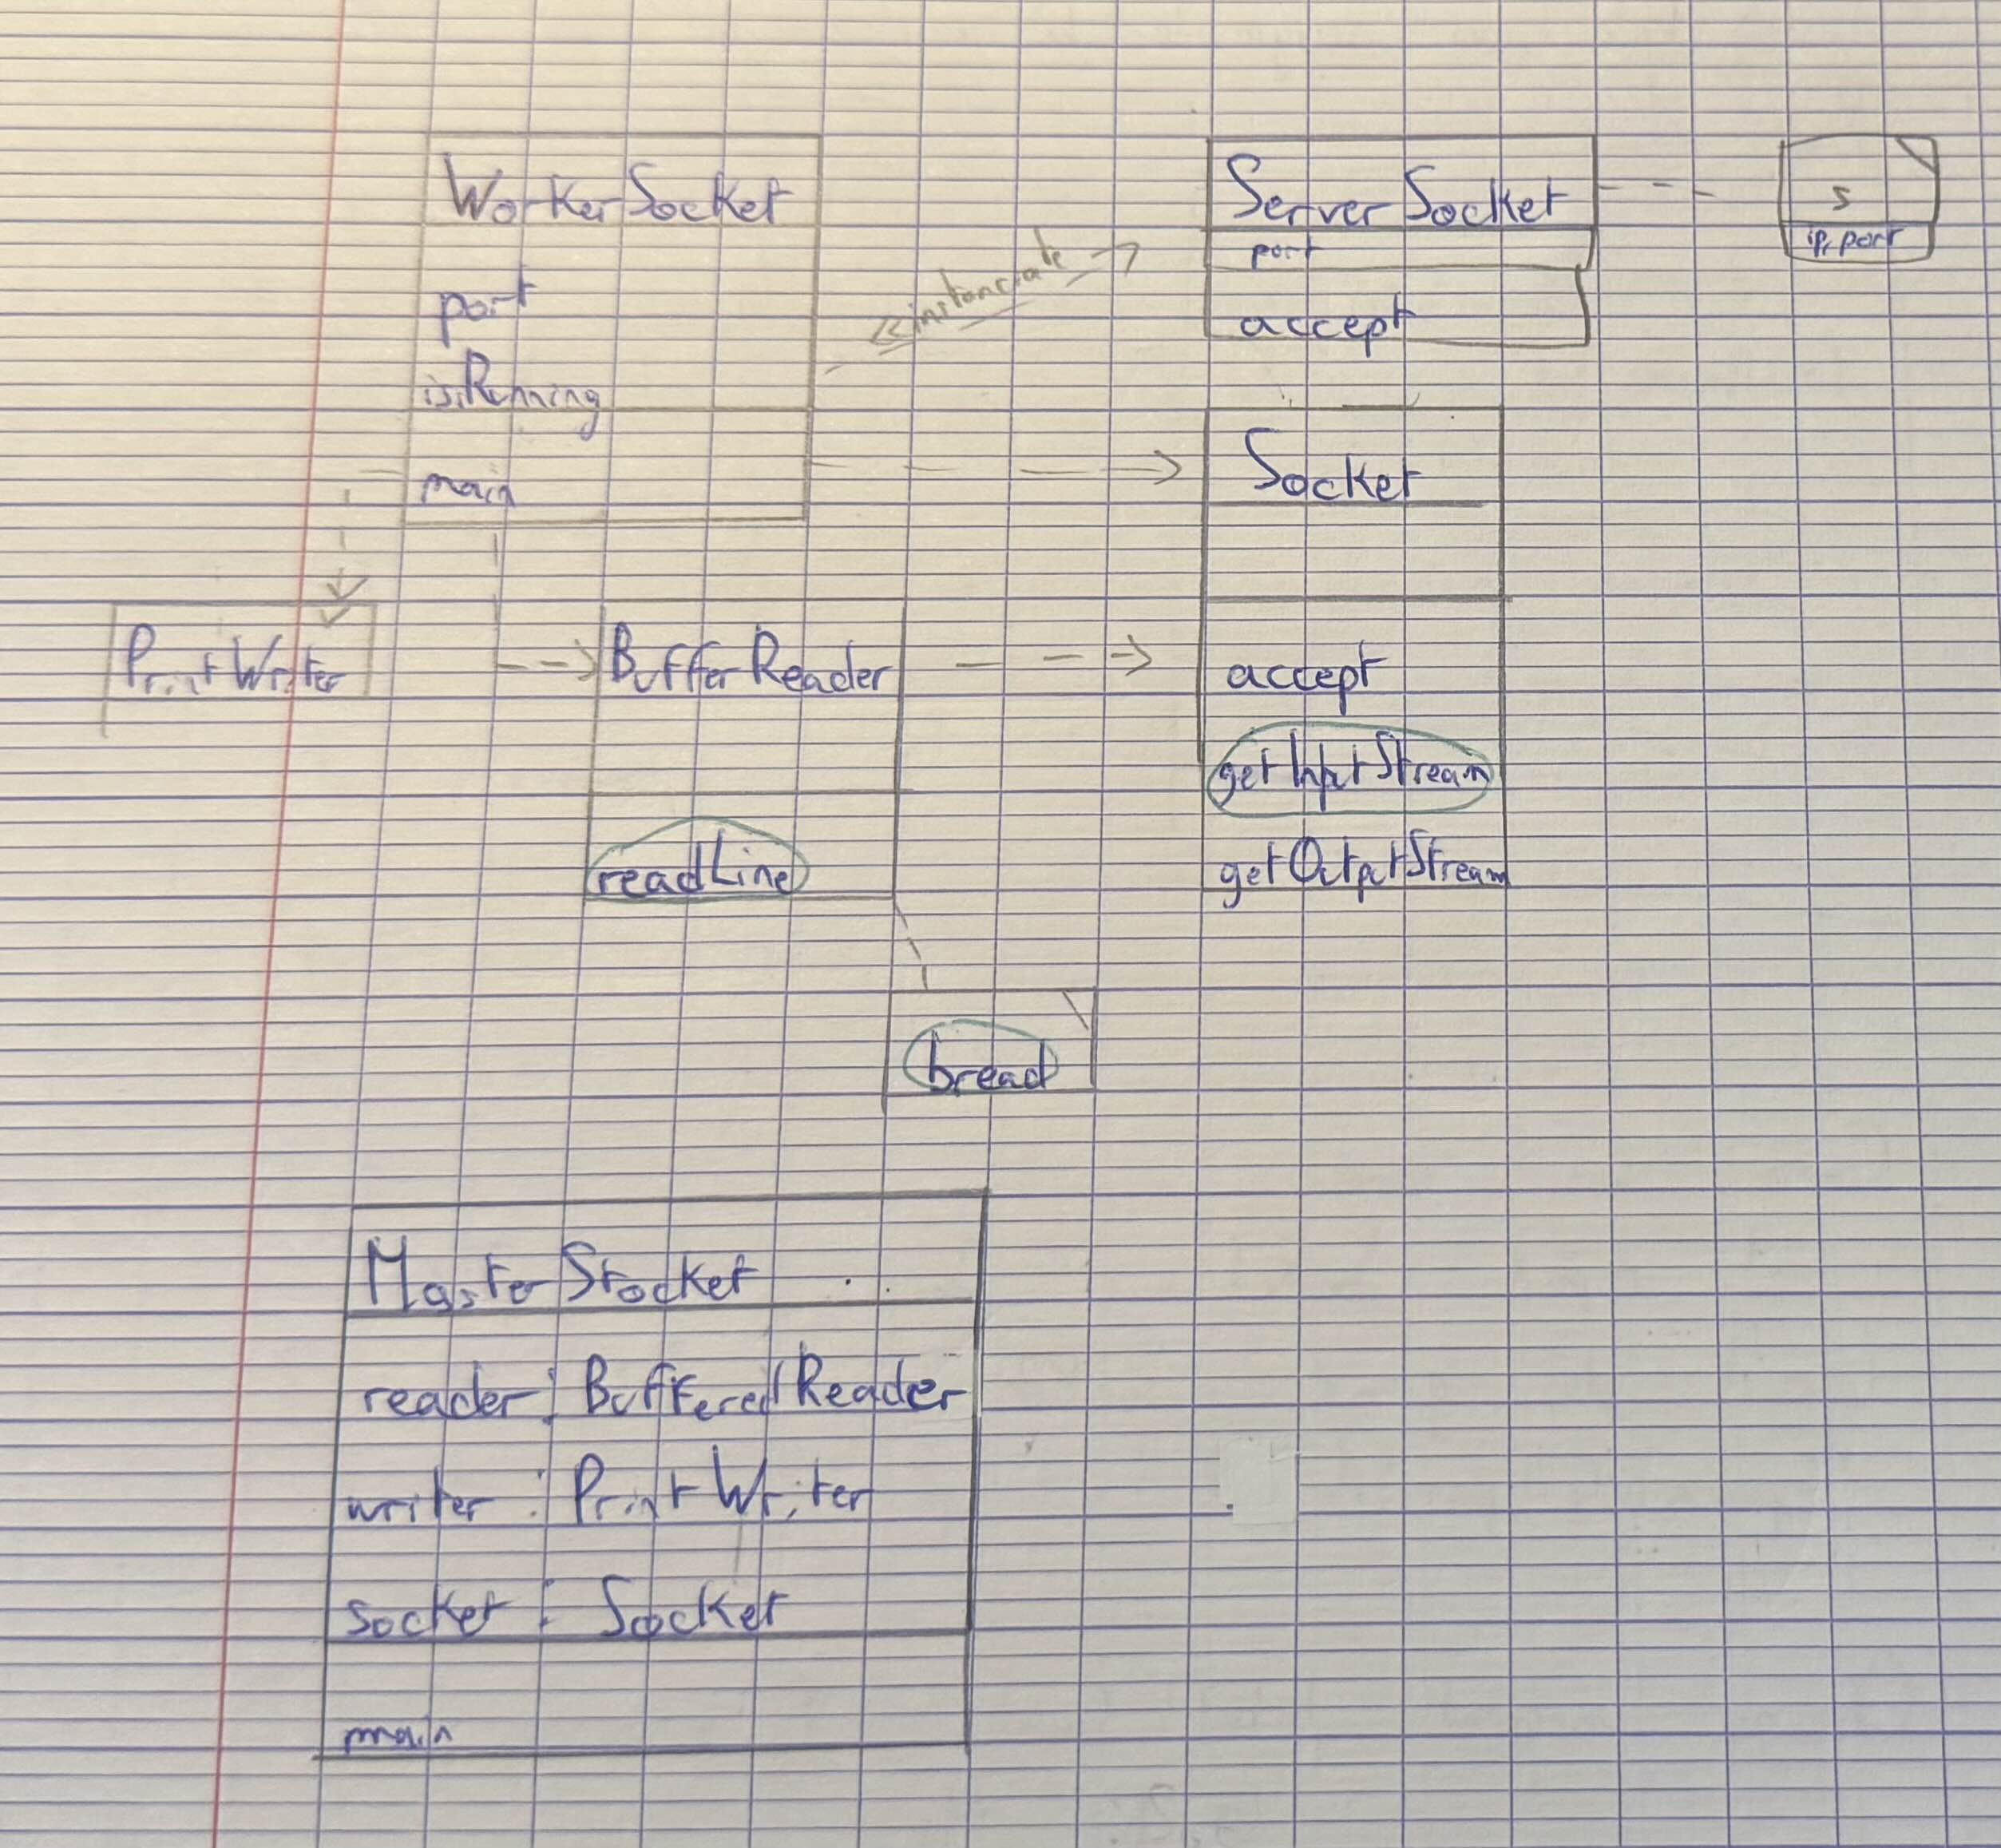 WorkerSocket
port
isRunning
main
<<instanciate
ServerSocket
port
accept
s
ip, port
Socket
accept
getInputStream
getOutputStream
PrintWriter
BufferReader
readLine
bread
MasterStocket
reader : BufferedReader
writer : PrintWriter
socket : Socket
main